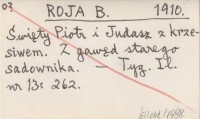 03
ROJA B. 1910.
Święty Piotr i Judasz z krze-
siwem. Z gawęd starego
sadownika. — Tyg. Il.
nr 13 : 262.